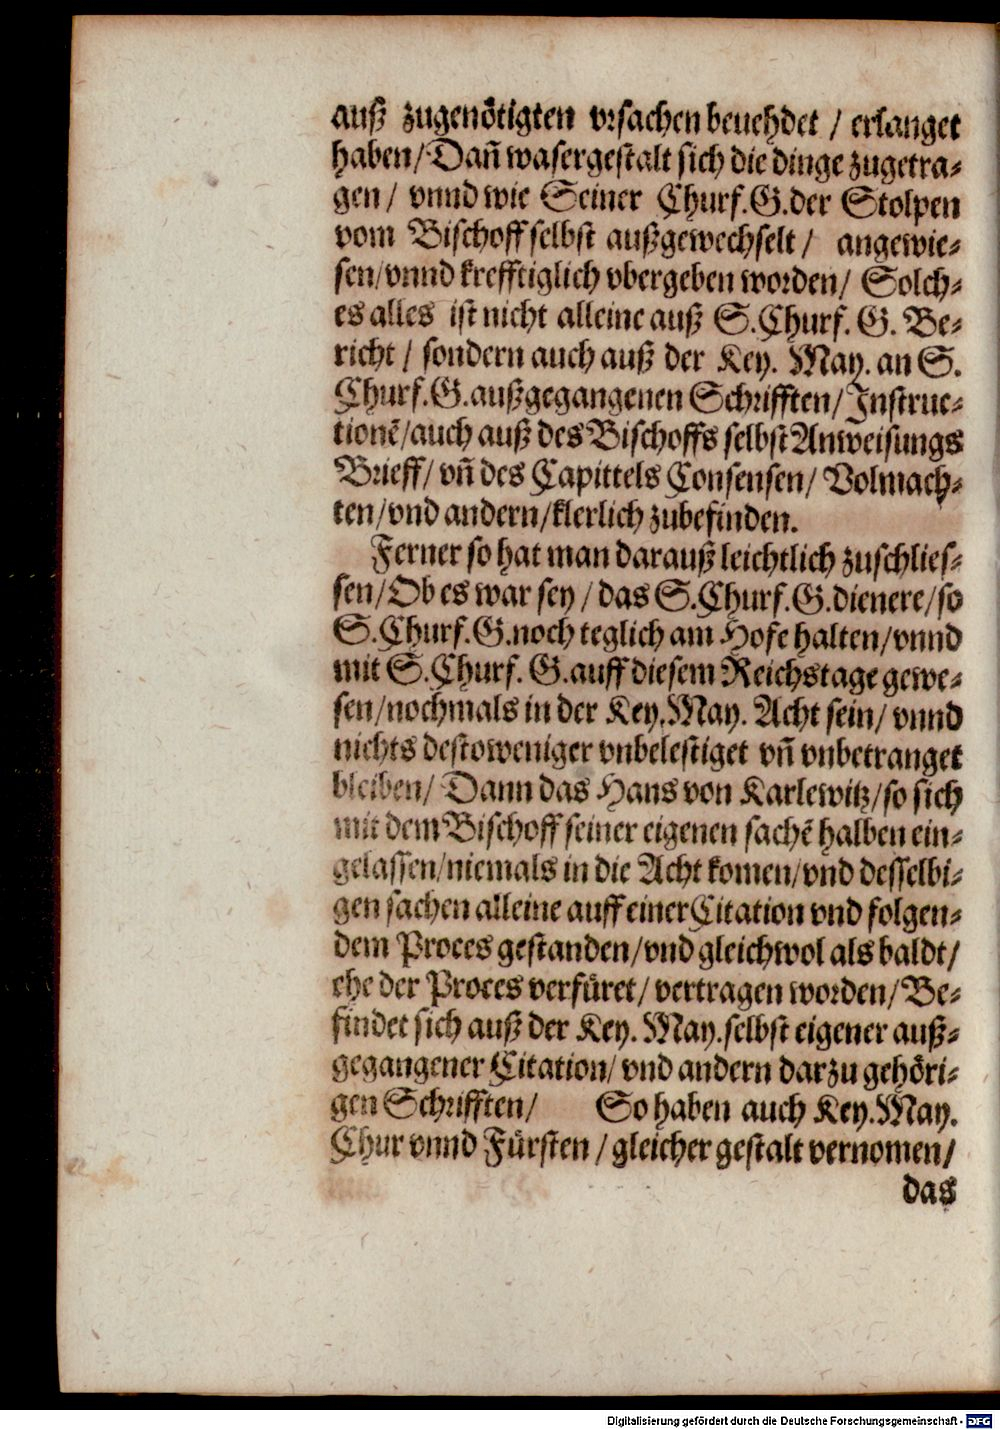 auß zugenötigten vrsachen beuehdet / erlanget
haben/ Dañ wasergestalt sich die dinge zugetra-
gen / vnnd wie Seiner Churf. G. der Stolpen
vom Bischoff selbst außgewechselt / angewie-
sen/ vnnd krefftiglich vbergeben worden/ Solch-
es alles ist nicht alleine auß S. Churf. G. Be-
richt / sondern auch auß der Key. May. an S.
Churf. G. außgegangenen Schrifften/ Instruc-
tionē/ auch auß des Bischoffs selbst Anweisungs
Brieff/ vñ des Capittels Consensen/ Volmach-
ten/ vnd andern/ klerlich zubefinden.
Ferner so hat man darauß leichtlich zuschlies-
sen/ Ob es war sey / das S. Churf. G. dienere/ so
S. Churf. G. noch teglich am Hofe halten/ vnnd
mit S. Churf. G. auff diesem Reichstage gewe-
sen/ nochmals in der Key. May. Acht sein/ vnnd
nichts destoweniger vnbelestiget vñ vnbetranget
bleiben/ Dann das Hans von Karlewitz/ so sich
mit dem Bischoff seiner eigenen sachē halben ein-
gelassen/ niemals in die Acht komen/ vnd desselbi-
gen sachen alleine auff einer Citation vnd folgen-
dem Proces gestanden/ vnd gleichwol als baldt/
ehe der Proces verfüret/ vertragen worden/ Be-
findet sich auß der Key. May. selbst eigener auß-
gegangener Citation/ vnd andern darzu gehöri-
gen Schrifften/ So haben auch Key. May.
Chur vnnd Fürsten / gleicher gestalt vernomen/
das
Digitalisierung gefördert durch die Deutsche Forschungsgemeinschaft - DFG